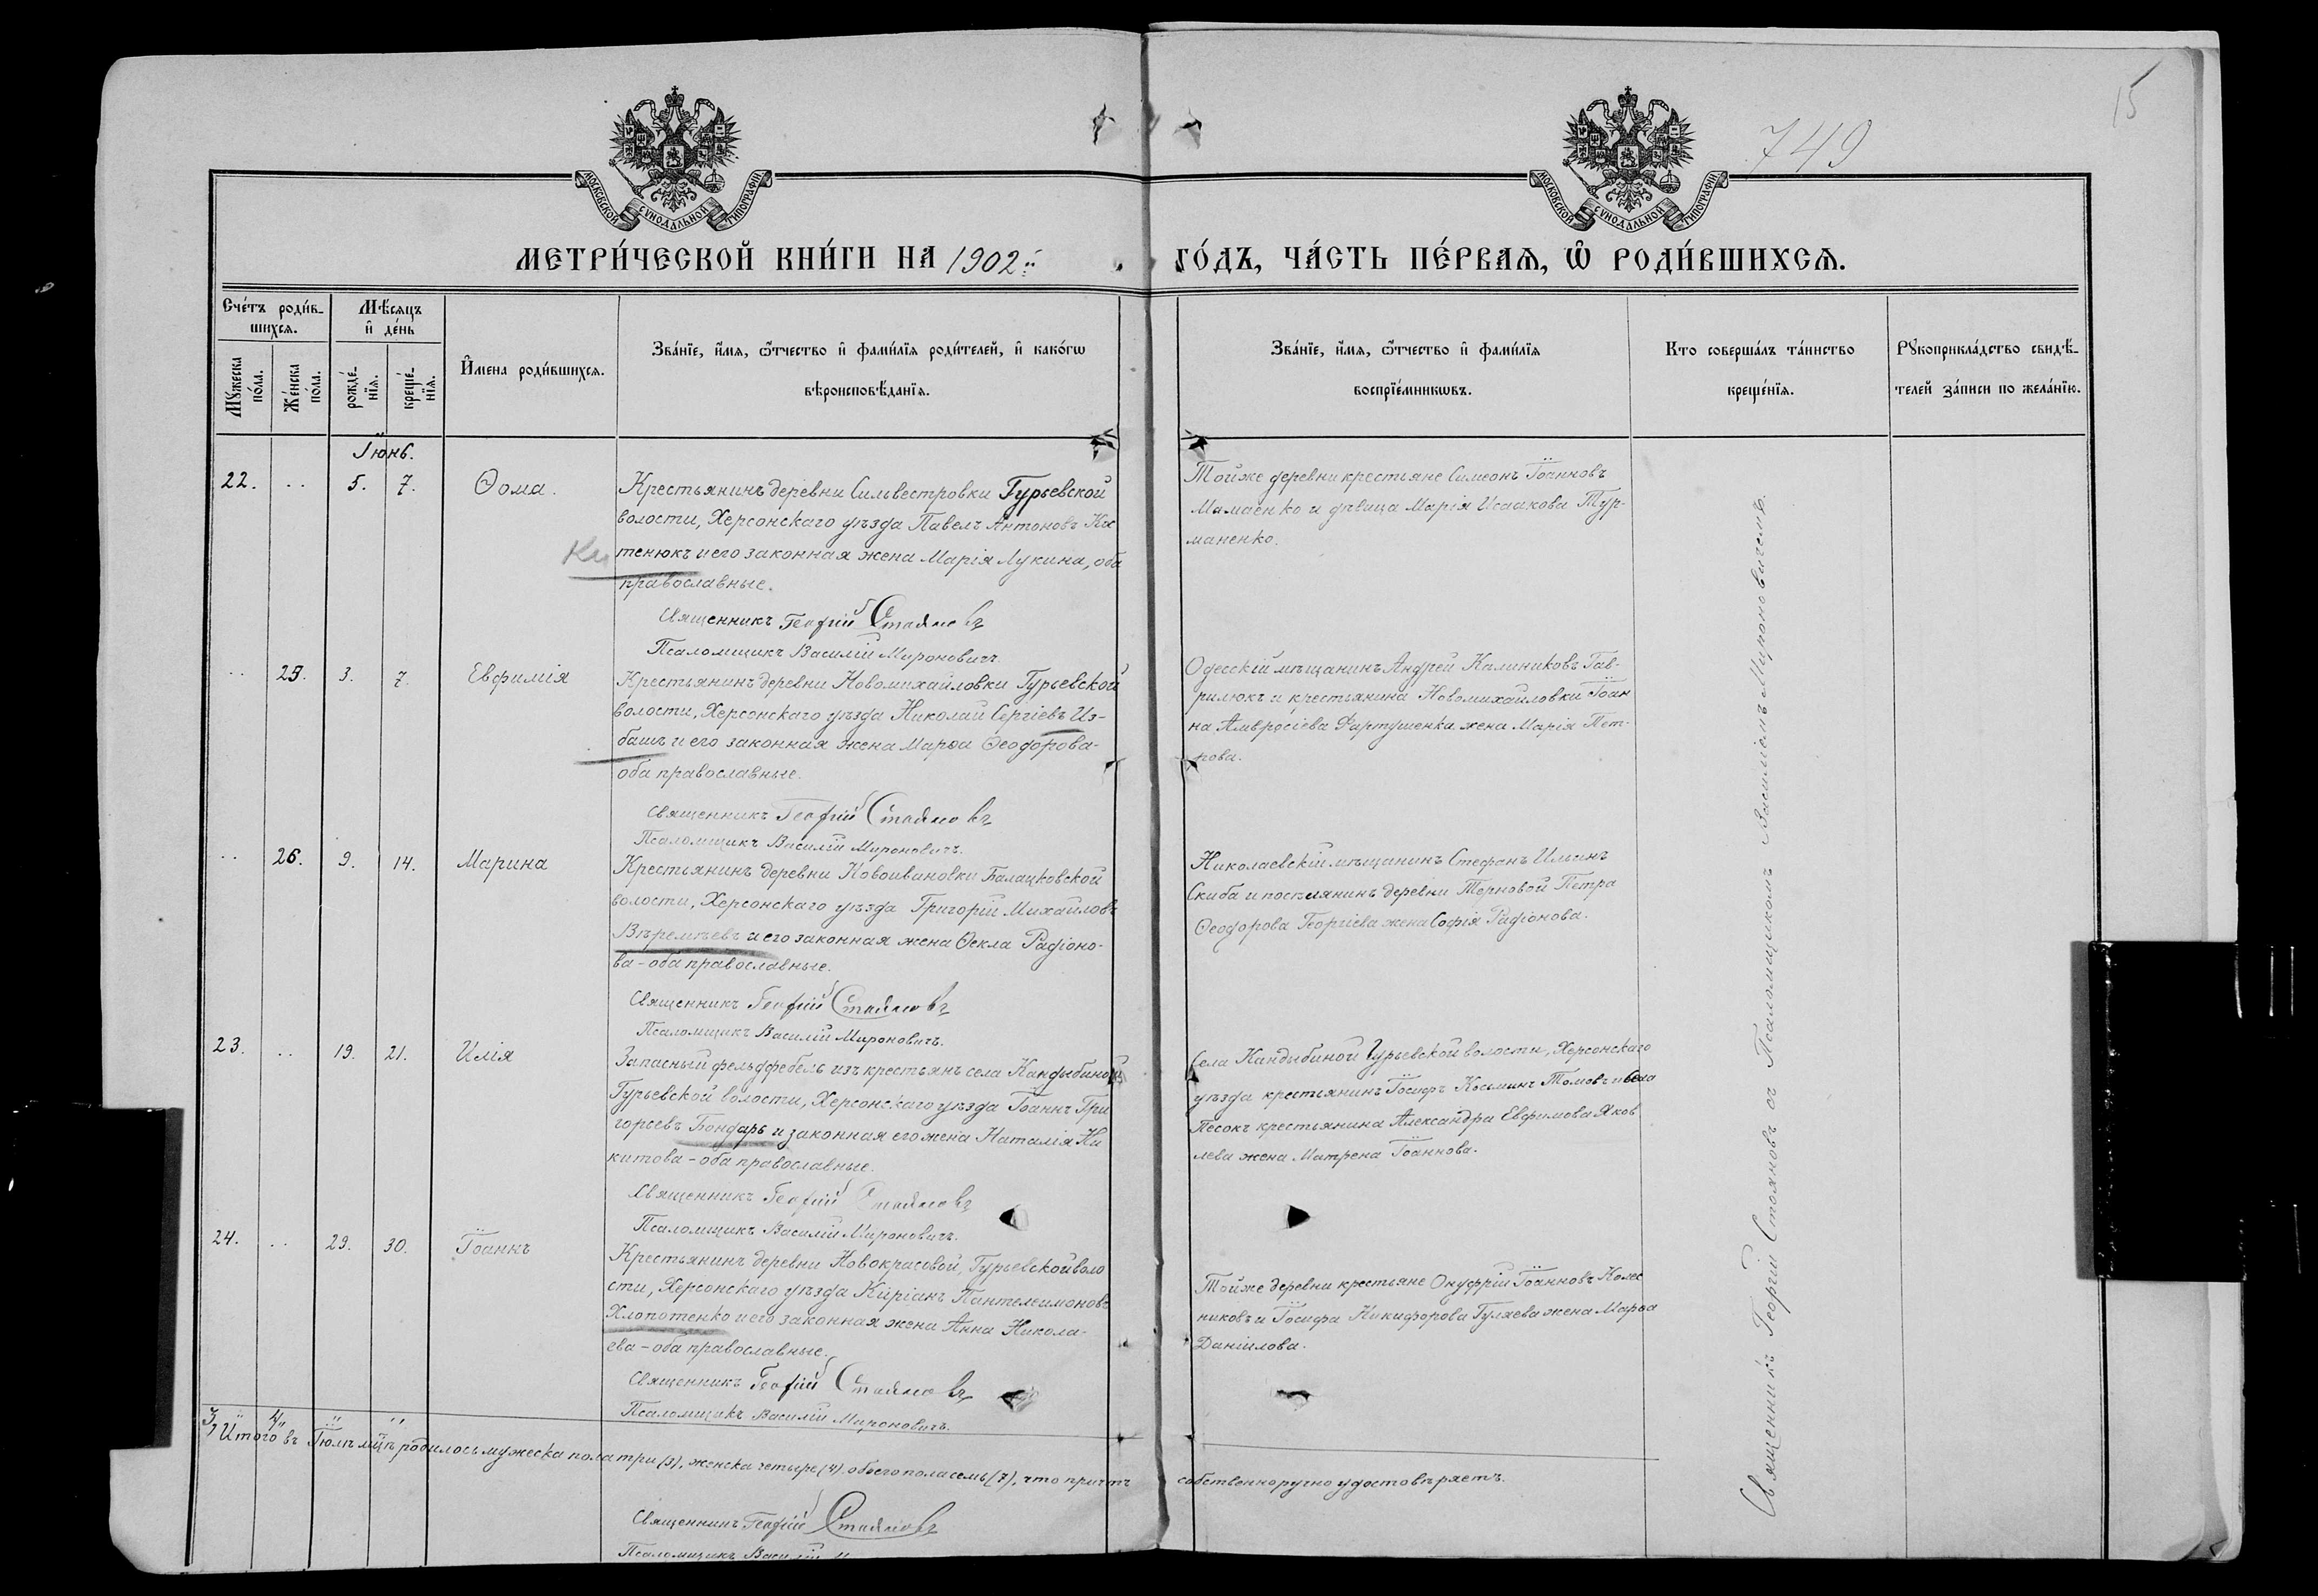 749
15
МОСКОВСКОЙ СѴНОДАЛЬНОЙ ТИПОГРАФІИ
МОСКОВСКОЙ СѴНОДАЛЬНОЙ ТИПОГРАФІИ
МЕТРИ́ЧЕСКОЙ КНИ́ГИ НА 1902й
ГО́ДЪ, ЧА́СТЬ ПЕ́РВАѦ, Ѡ҆ РОДИ́ВШИХСѦ.
Сче́тъ роди́в-
шихсѧ.
Мѣ́сѧцъ
и҆ де́нь
Мꙋ́жеска
по́ла.
Же́нска
по́ла.
рожде́-
нїѧ.
креще́-
нїѧ.
И҆мена роди́вшихсѧ.
Зва́нїе, и҆́мѧ, ѻ҆́тчество и҆ фами́лїѧ роди́телей, и҆ како́гѡ
вѣроисповѣ́данїѧ.
Зва́нїе, и҆́мѧ, ѻ҆́тчество и҆ фами́лїѧ
воспрїе́мникѡвъ.
Кто соверша́лъ та́инство
креще́нїѧ.
Рꙋкоприкла́дство свидѣ́-
телей за́писи по жела́нїю.
Іюнь.
22. .. 5. 7. Ѳома.
Крестьянинъ деревни Сильвестровки Гурьевской
волости, Херсонскаго уѣзда Павелъ Антоновъ
тенюкъ и его законная жена Марія Лукина, оба
православные.
Священникъ Георгій Стояновъ
Псаломщикъ Василій Мироновичъ.
Тойже деревни крестьяне Симеонъ Іоанновъ
Мамаенко и дѣвица Марія Исаакова Тур-
маненко.
.. 25. 3. 7. Евфимія
Крестьянинъ деревни Новомихайловки Гурьевской
волости, Херсонскаго уѣзда Николай Сергіевъ Из-
башъ и его законная жена Марѳа Ѳеодорова-
оба православные.
Священникъ Георгій Стояновъ
Псаломщикъ Василій Мироновичъ.
Одесскій мѣщанинъ Андрей Калиниковъ Гав-
рилюкъ и крестьянина Новомихайловки Іоан
на Амвросіева Фартушенка жена Марія Пет-
рова.
.. 26. 9. 14. Марина
Крестьянинъ деревни Новоивановки Балацковской
волости, Херсонскаго уѣзда Григорій Михайловъ
Вѣремѣевъ и его законная жена Ѳекла Радіоно-
ва - оба православные.
Священникъ Георгій Стояновъ
Псаломщикъ Василій Мироновичъ.
Николаевскій мѣщанинъ Стефанъ Ильинъ
Скиба и поселянинъ деревни Терновой Петра
Ѳеодорова Георгіева жена Софія Радіонова.
23. .. 19. 21. Илія
Запасный фельдфебель изъ крестьянъ села Кандыбиной
Гурьевской волости, Херсонскаго уѣзда Іоаннъ Гри
горьевъ Бондарь и законная его жена Наталія Ни
китова - оба православные.
Священникъ Георгій Стояновъ
Псаломщикъ Василій Мироновичъ.
Села Кандыбиной Гурьевской волости, Херсонскаго
уѣзда крестьянинъ Іосифъ Косьминъ Томовъ и села
Песокъ крестьянина Александра Евфимова Яков
лева жена Матрена Іоаннова.
24. .. 29. 30. Іоаннъ
Крестьянинъ деревни Новокрасовой, Гурьевской воло
сти, Херсонскаго уѣзда Киріанъ Пантелеимоновъ
Хлопотенко и его законная жена Анна Никола-
ева - оба православные.
Священникъ Георгій Стояновъ
Псаломщикъ Василій Мироновичъ.
Тойже деревни крестьяне Онуфрій Іоанновъ Колес
никовъ и Іосифа Никифорова Гуляева жена Марѳа
Даніилова.
Священникъ Георгій Стояновъ съ Псаломщикомъ Василіемъ Мироновичемъ.
3, 4,, Итого въ Іюнѣ мцѣ родилось мужеска пола три (3), женска четыре (4) обоего пола семь (7), что причтъ собственноручно удостовѣряетъ.
Священникъ Георгій Стояновъ
Псаломщикъ